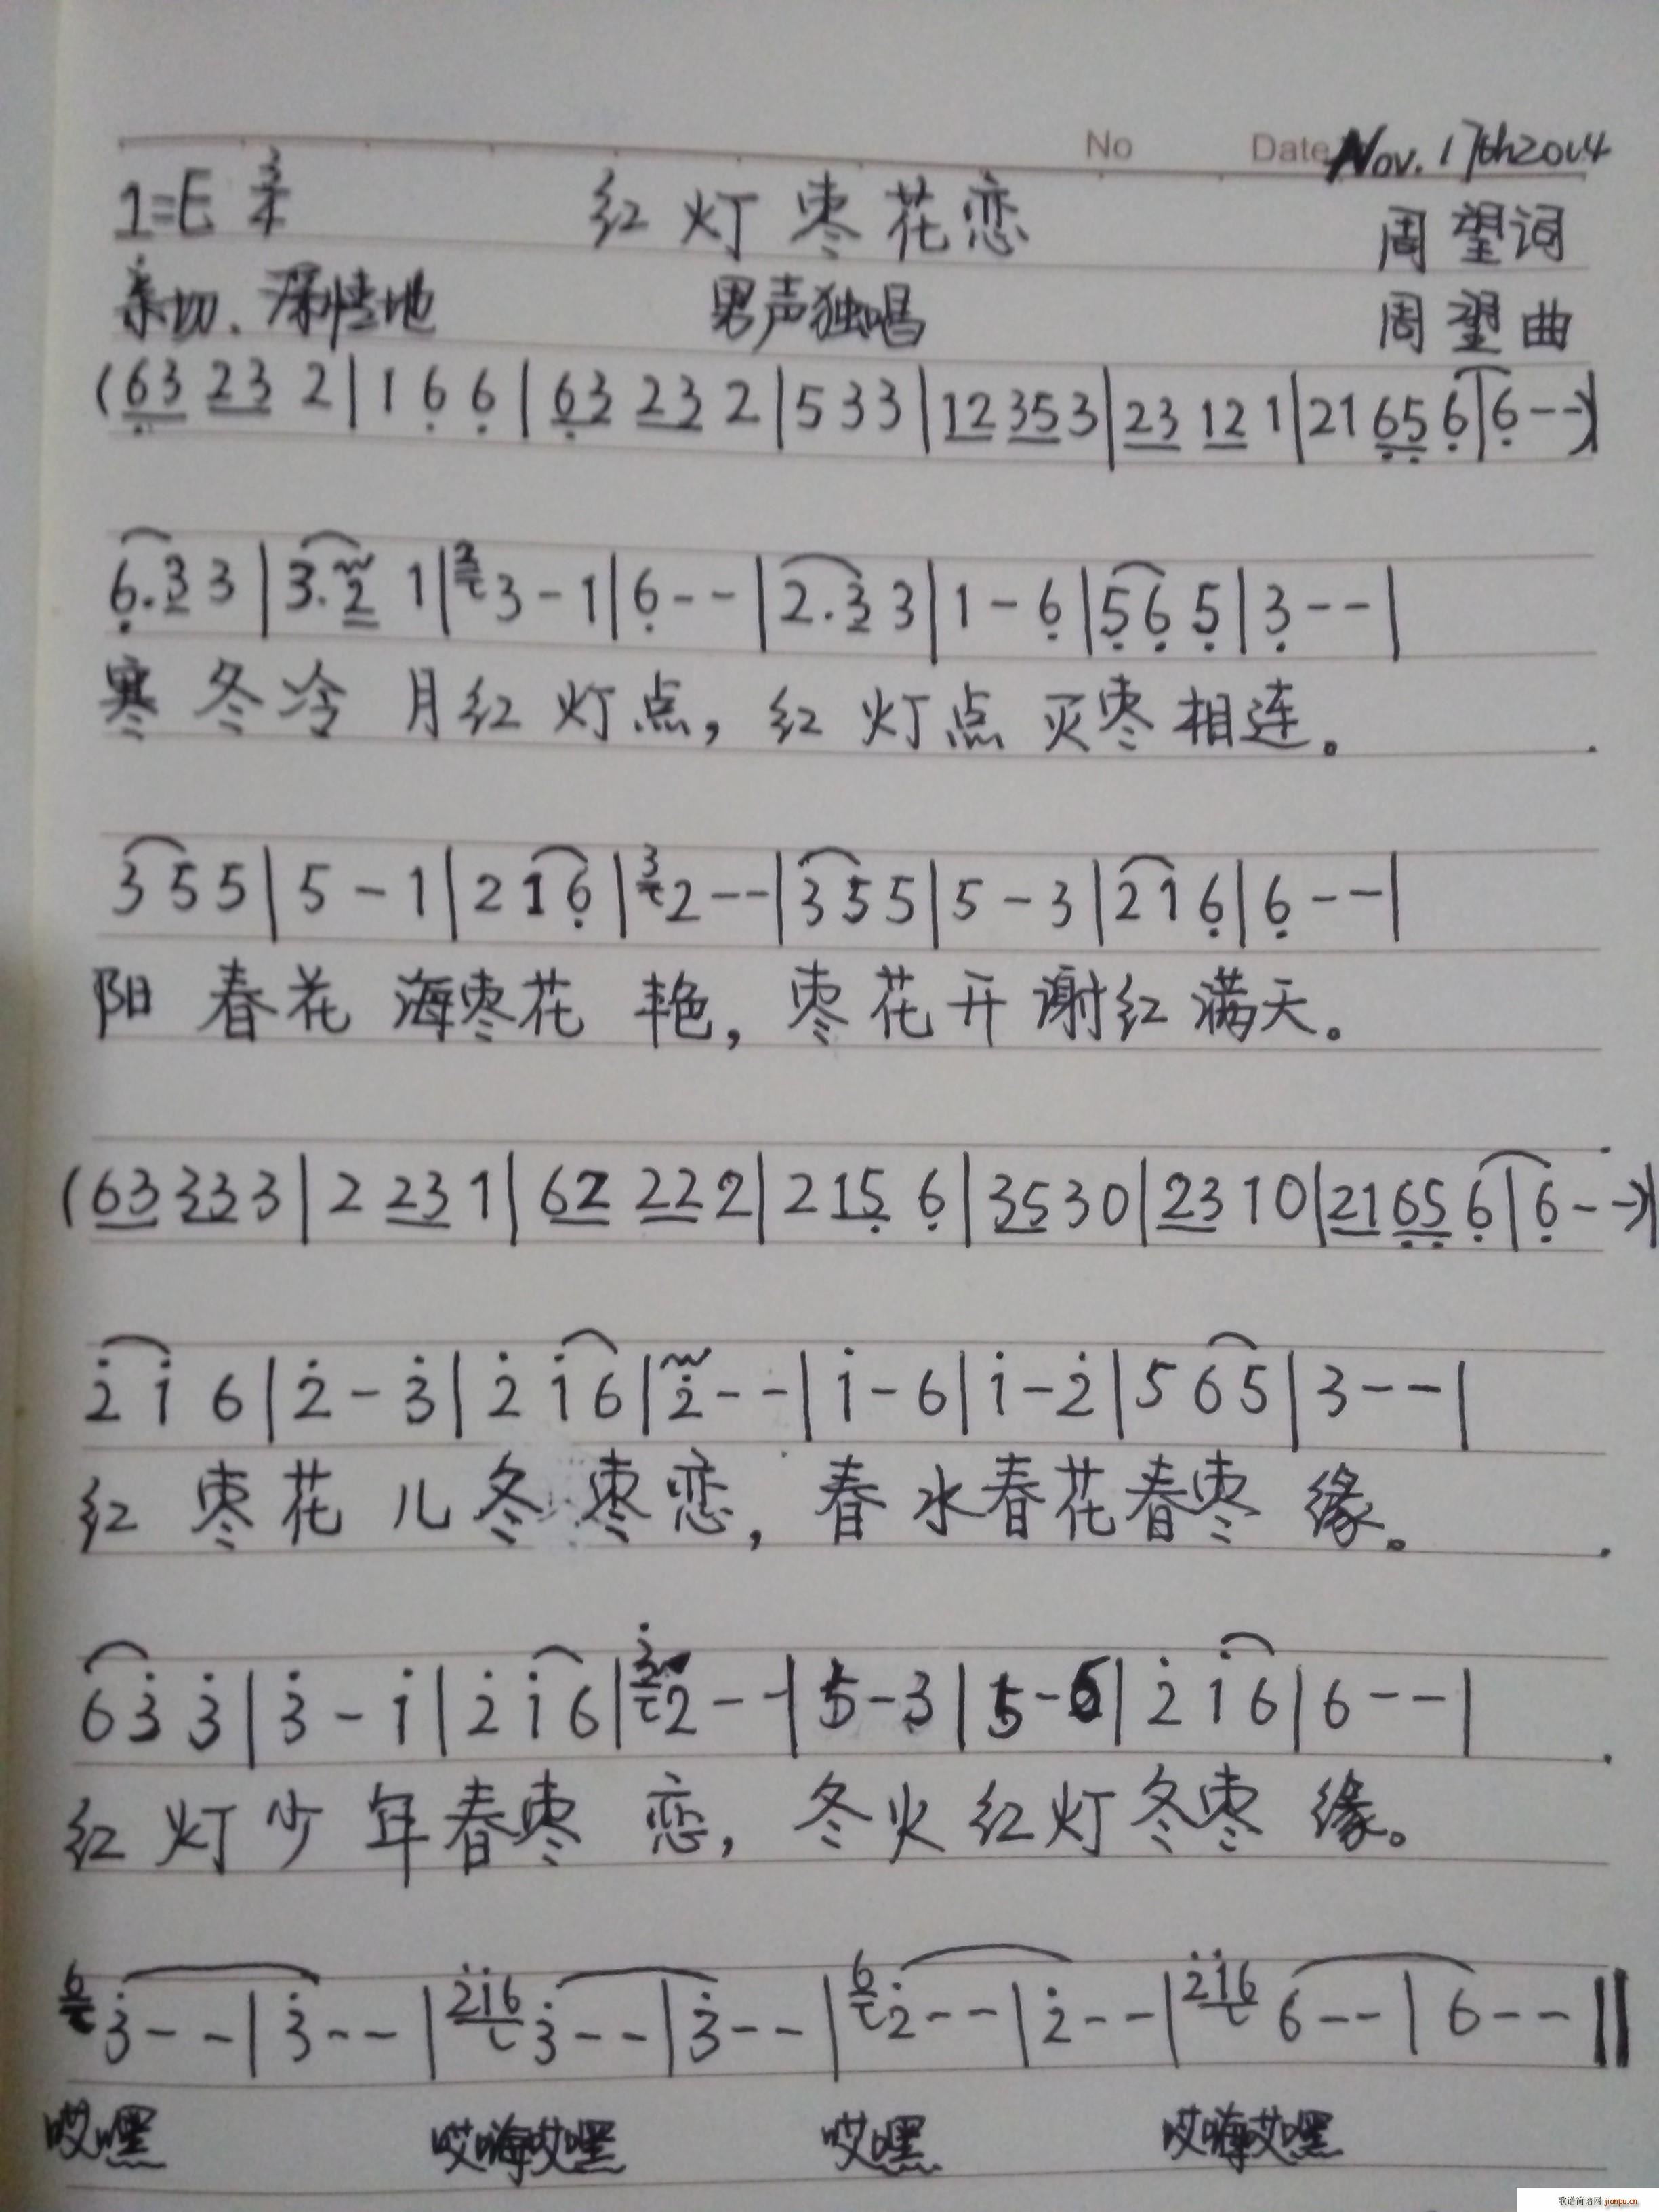 No Date Nov. 17th2014
1=E 3/4 红灯枣花恋 周望词
亲切.深情地 男声独唱 周望曲
(6̣3 23 2|1 6̣ 6̣|6̣3 23 2|5 3 3|12 35 3|23 12 1|21 6̣5̣ 6̣|6̣--)|
6̣.3 3|3.2 1|2 3-1|6̣--|2.3 3|1-6̣|5̣6̣ 5̣|3̣--|
寒冬冷月红灯点，红灯点灭枣相连。
3 5 5|5-1|2 1 6̣|3 2--|3 5 5|5-3|2 1 6̣|6̣--|
阳春花海枣花艳，枣花开谢红满天。
(63 33 3|2 23 1|62 22 2|2 15̣ 6̣|35 3 0|23 1 0|21 6̣5̣ 6̣|6̣--)|
2̇ 1̇ 6|2̇-3̇|2̇ 1̇ 6|2̇--|1̇-6|1̇-2̇|5 6 5|3--|
红枣花儿冬枣恋，春水春花春枣缘。
6 3̇ 3̇|3̇-1̇|2̇ 1̇ 6|3̇ 2--|5-3|5-6|2̇ 1̇ 6|6--|
红灯少年春枣恋，冬火红灯冬枣缘。
6 3̇--|3̇--|2̇1̇6 3̇--|3̇--|6 2̇--|2̇--|2̇1̇6 6--|6--‖
哎嘿 哎嗨哎嘿 哎嘿 哎嗨哎嘿
歌谱简谱网 jianpu.cn